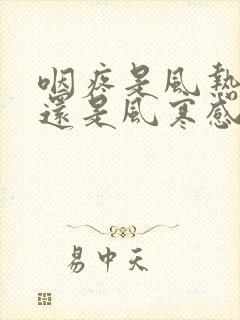 咽疼是風熱
還是風寒感
易中天